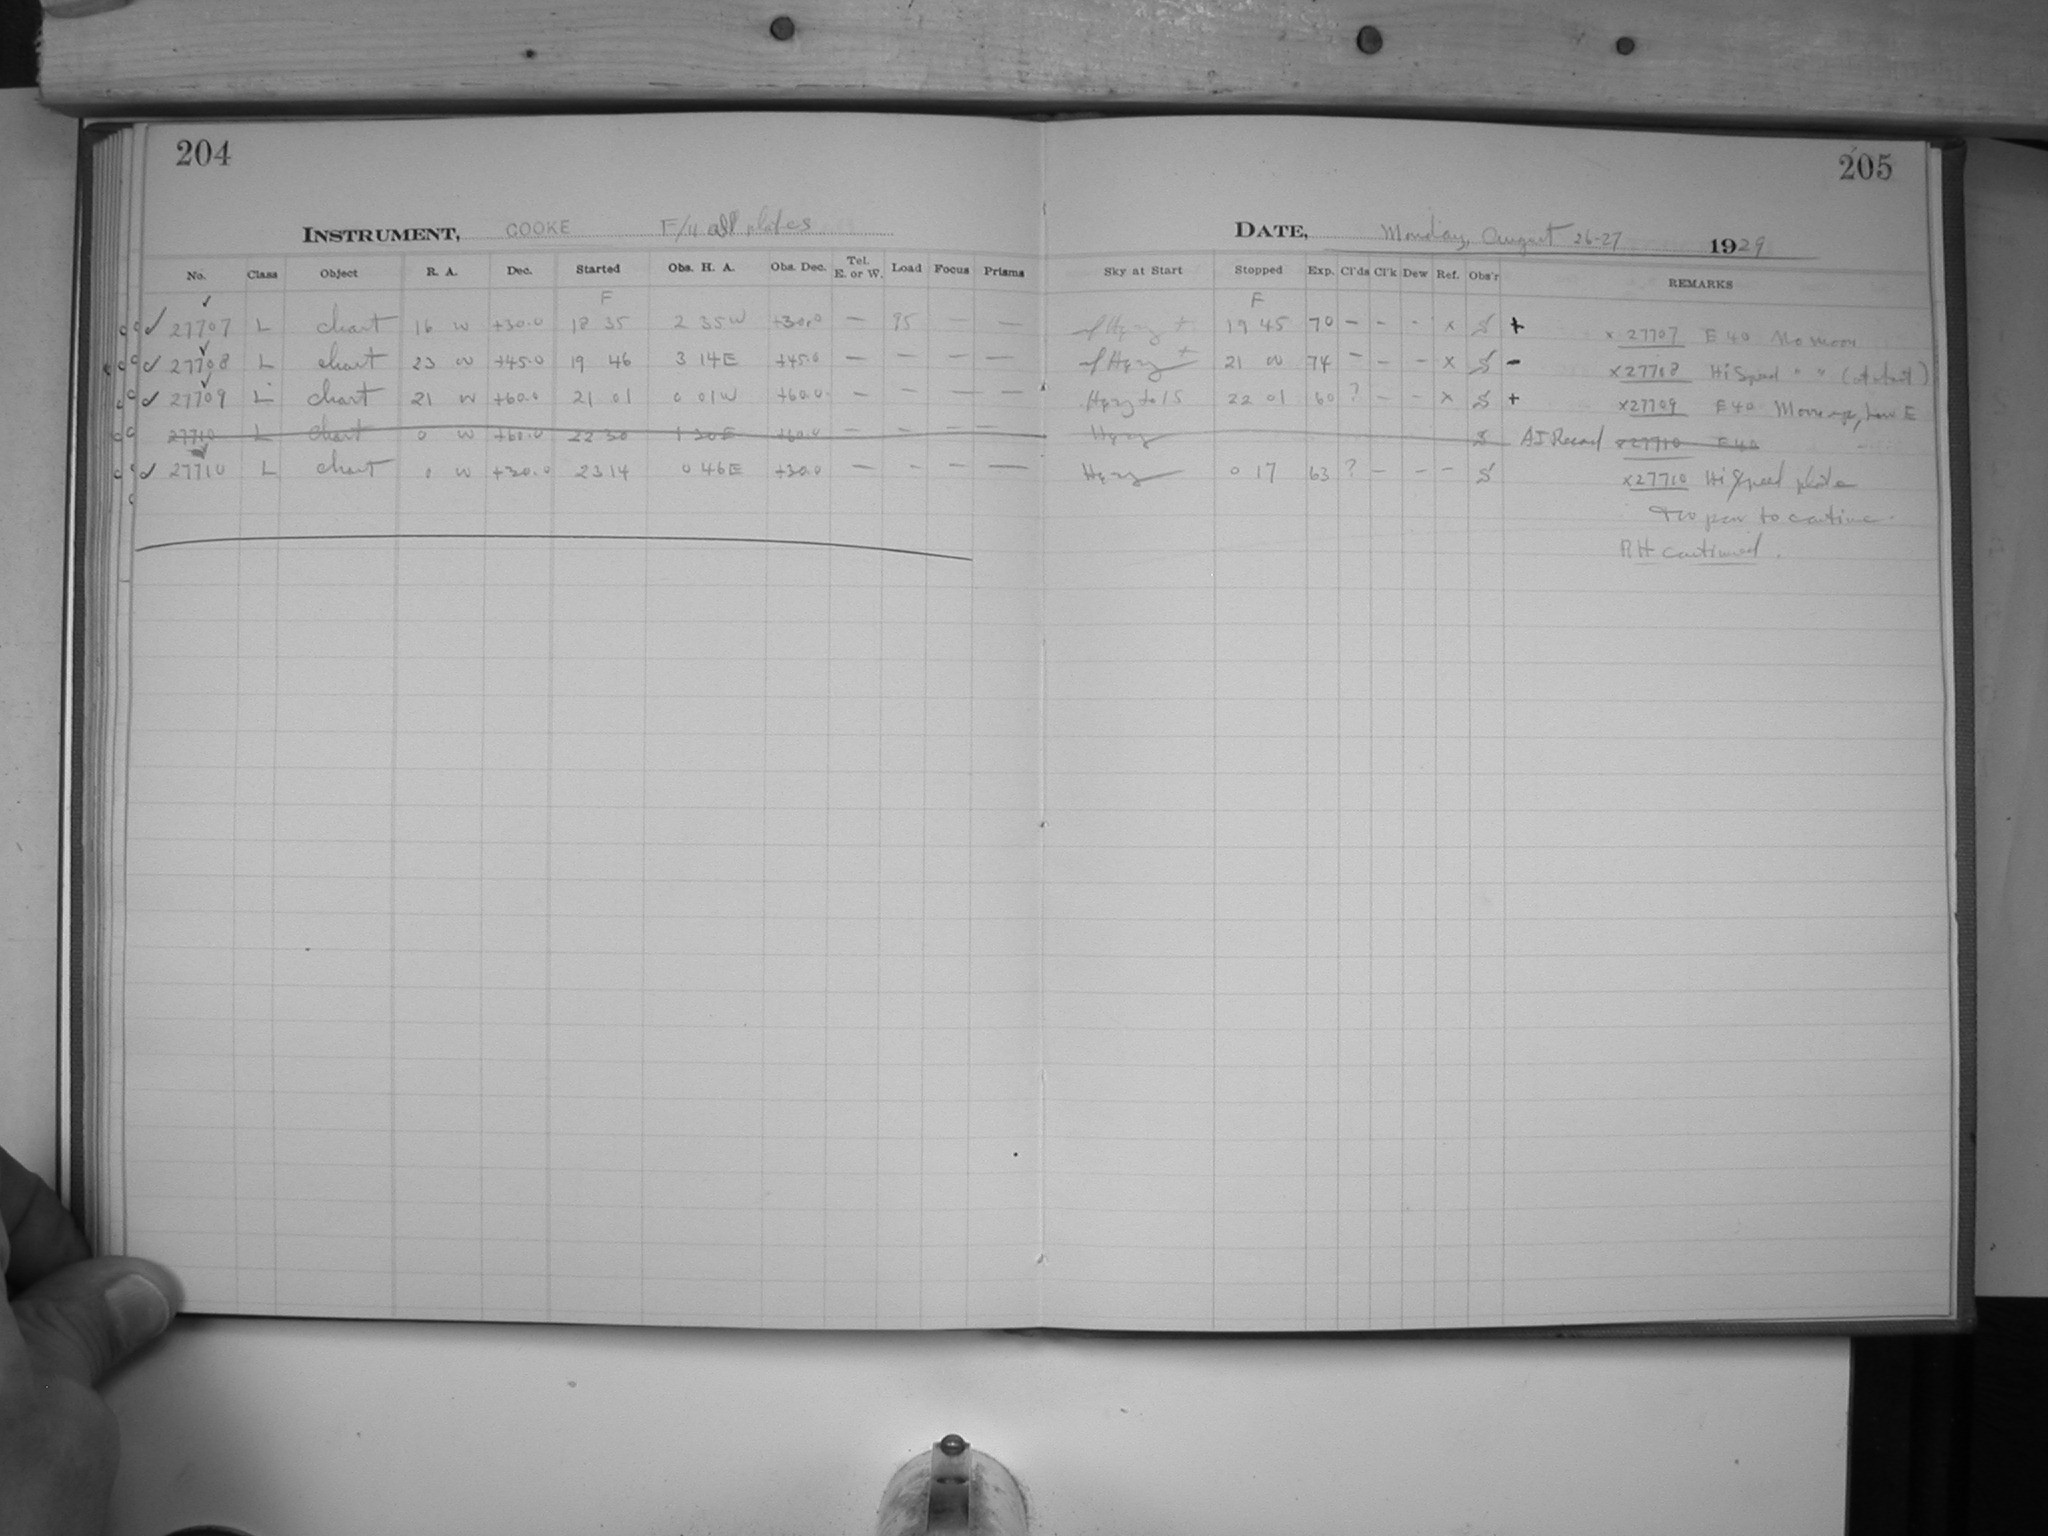 204
205
INSTRUMENT, COOKE F/11 all plates
DATE, Monday, August 26-27 1929
No. Class Object R. A. Dec. Started Obs. H. A. Obs. Dec. Tel. E. or W. Load Focus Prisms Sky at Start Stopped Exp. Cl'ds Cl'k Dew Ref. Obs'r REMARKS
F F
27707 L chart 16 W +30.0 18 35 2 35 W +30.0 — 95 — — Hazy + 19 45 70 - - - x S + x 27707 E 40 No moon
27708 L chart 23 W +45.0 19 46 3 14 E +45.0 — — — — Hazy + 21 W 74 - - - x S - x 27708 Hi Speed " " (at start)
27709 L chart 21 W +60.0 21 01 0 01 W +60.0 — — — Hazy to 15 22 01 60 ? - - x S + x 27709 E 40 Moon up, low E
27710 L chart 0 W +60.0 22 30 1 30 E +60.0 — - — — Hazy S x 27710 E 40
27710 L chart 0 W +30.0 23 14 0 46 E +30.0 — - — — Hazy 0 17 63 ? - - - S x 27710 Hi Speed plate
Too poor to continue.
RH continued.